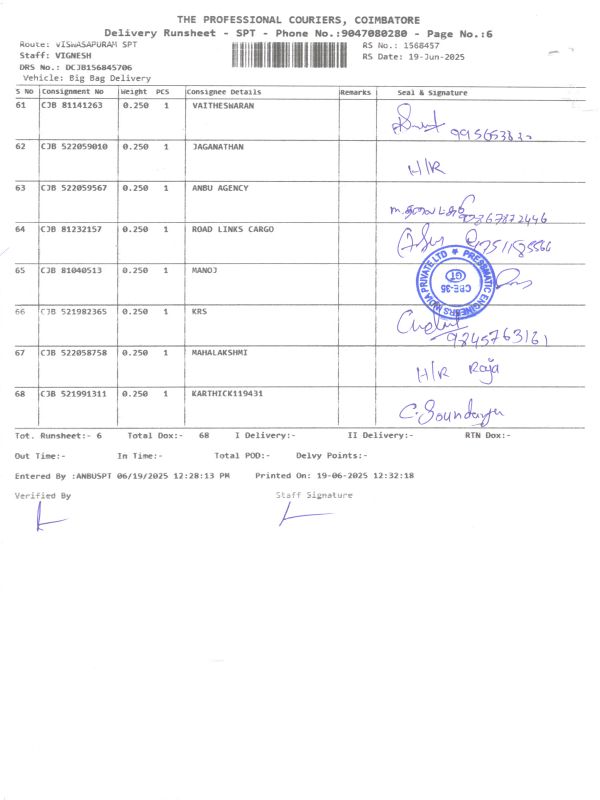 THE PROFESSIONAL COURIERS, COIMBATORE
Delivery Runsheet - SPT - Phone No.:9047080280 - Page No.:6
Route: VISWASAPURAM SPT RS No.: 1568457
Staff: VIGNESH RS Date: 19-Jun-2025
DRS No.: DCJB156845706
Vehicle: Big Bag Delivery
S No Consignment No Weight PCS Consignee Details Remarks Seal & Signature
61 CJB 81141263 0.250 1 VAITHESWARAN
62 CJB 522059010 0.250 1 JAGANATHAN H/R
63 CJB 522059567 0.250 1 ANBU AGENCY
64 CJB 81232157 0.250 1 ROAD LINKS CARGO
65 CJB 81040513 0.250 1 MANOJ PRESSMATIC ENGINEERS INDIA PRIVATE LTD CBE-35
66 CJB 521982365 0.250 1 KRS 9845763161
67 CJB 522058758 0.250 1 MAHALAKSHMI H/R Raja
68 CJB 521991311 0.250 1 KARTHICK119431 C.Soundarya
Tot. Runsheet:- 6 Total Dox:- 68 I Delivery:- II Delivery:- RTN Dox:-
Out Time:- In Time:- Total POD:- Delvy Points:-
Entered By :ANBUSPT 06/19/2025 12:28:13 PM Printed On: 19-06-2025 12:32:18
Verified By Staff Signature